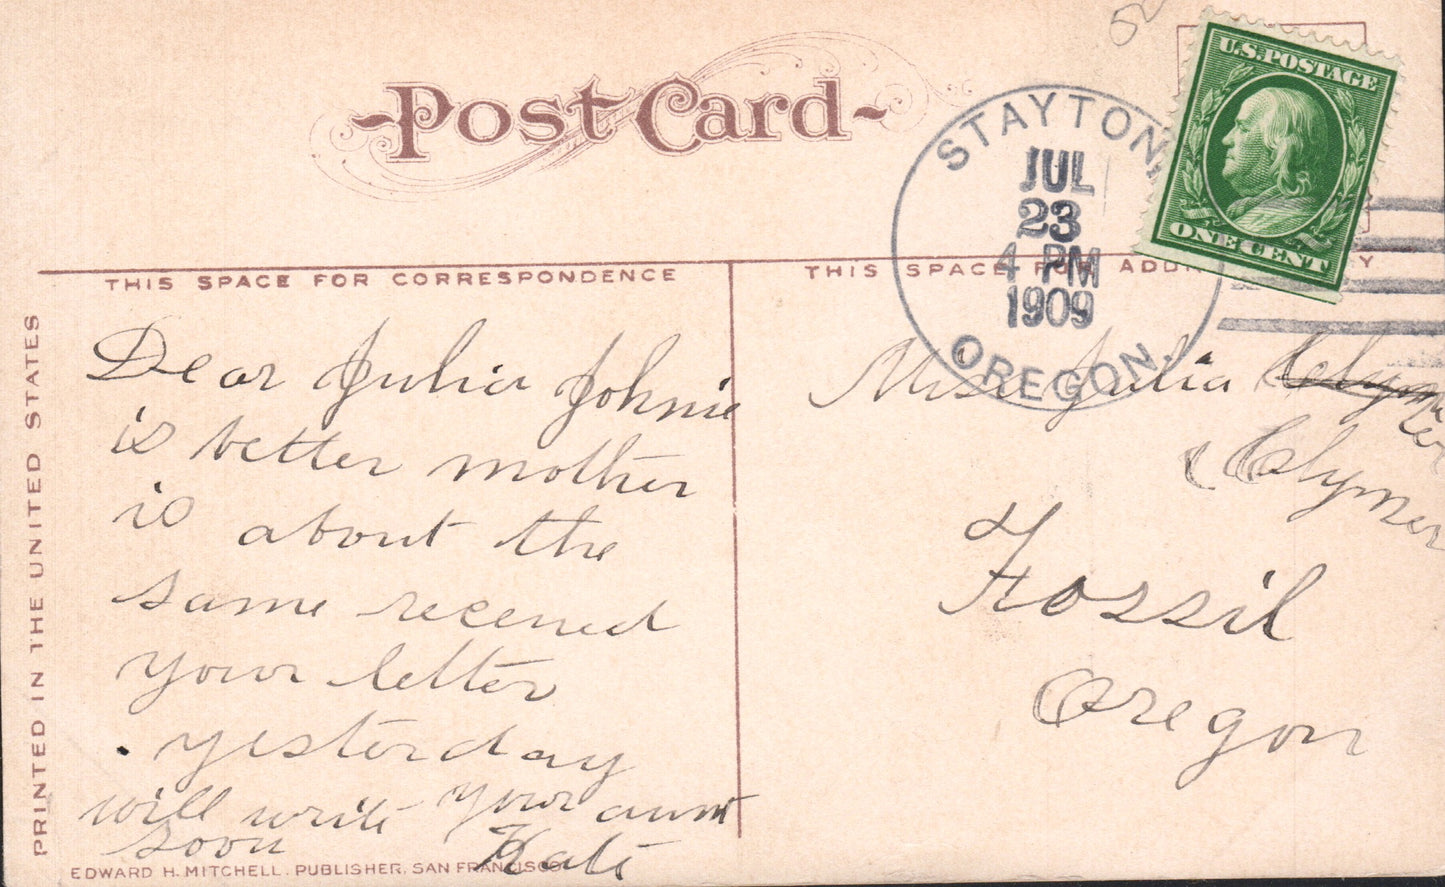 Post Card
U.S. POSTAGE
ONE CENT
STAYTON,
JUL
23
4 PM
1909
OREGON.
THIS SPACE FOR CORRESPONDENCE
THIS SPACE FOR ADDR Y
PRINTED IN THE UNITED STATES
Dear Julia Johnie
is better mother
is about the
same recened
your letter
. yesterday
will write your aunt
soon Kate
Miss Julia
Clymer
Fossil
Oregon
EDWARD H. MITCHELL, PUBLISHER, SAN FRANCISCO